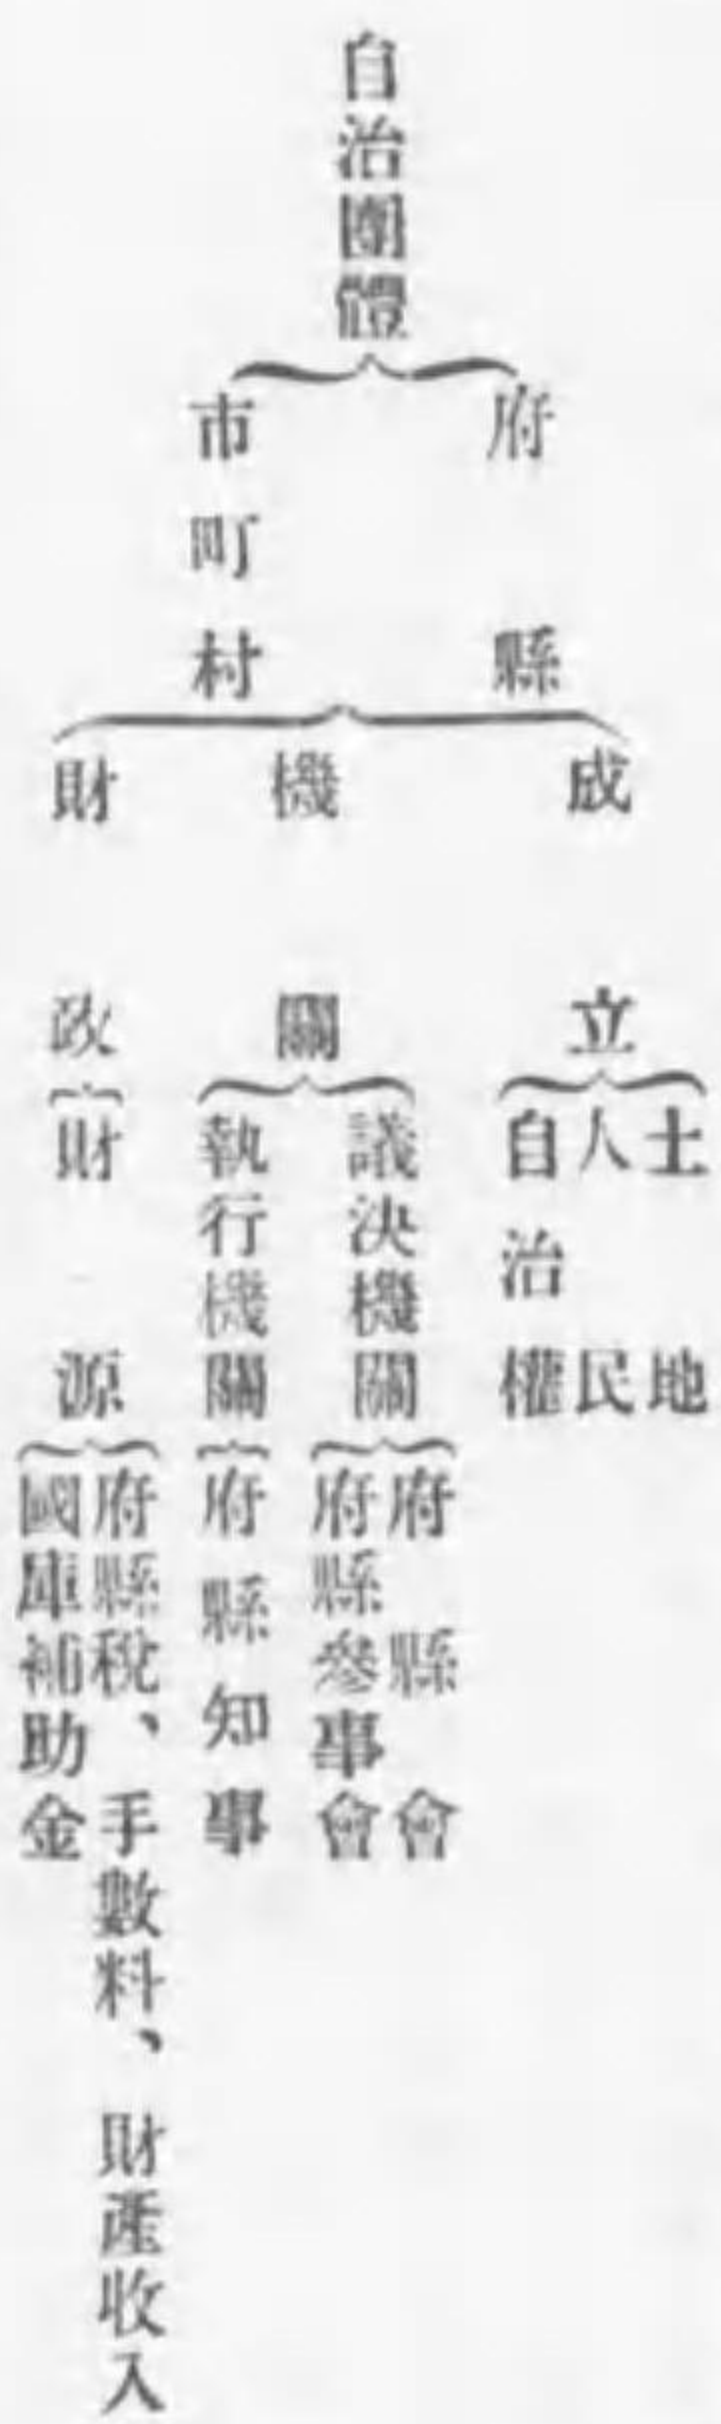 自治團體
府縣
市町村
成立
土地
人民
自治權
機關
議決機關
府縣會
府縣參事會
執行機關
府縣知事
財政
財源
府縣稅、手數料、財產收入
國庫補助金